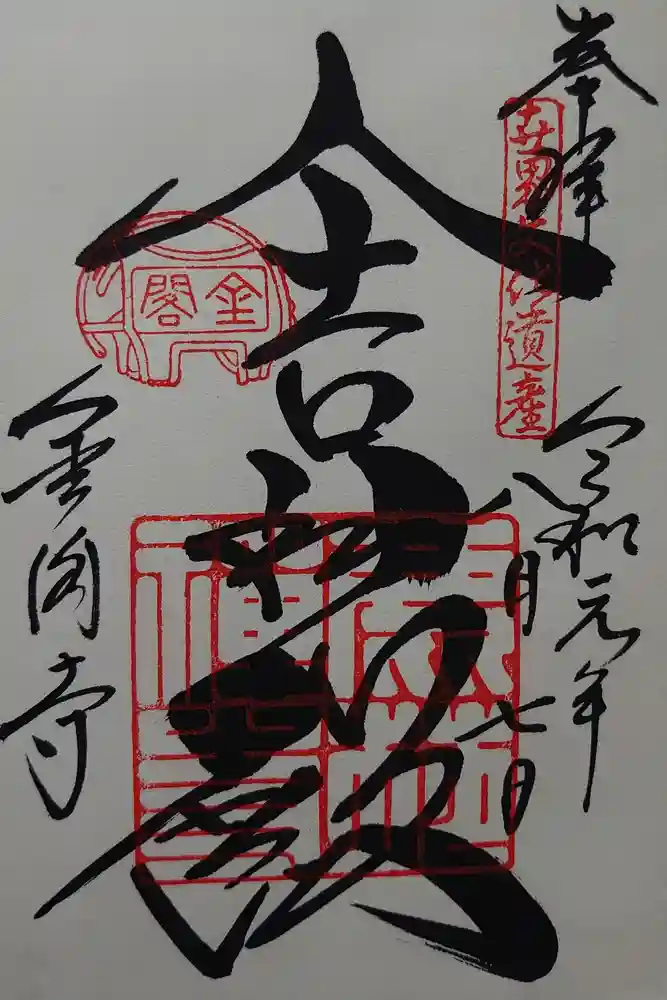 奉拝
世界文化遺産
令和元年
八月七日
舎利殿
鹿苑
禪寺
金閣
金閣寺